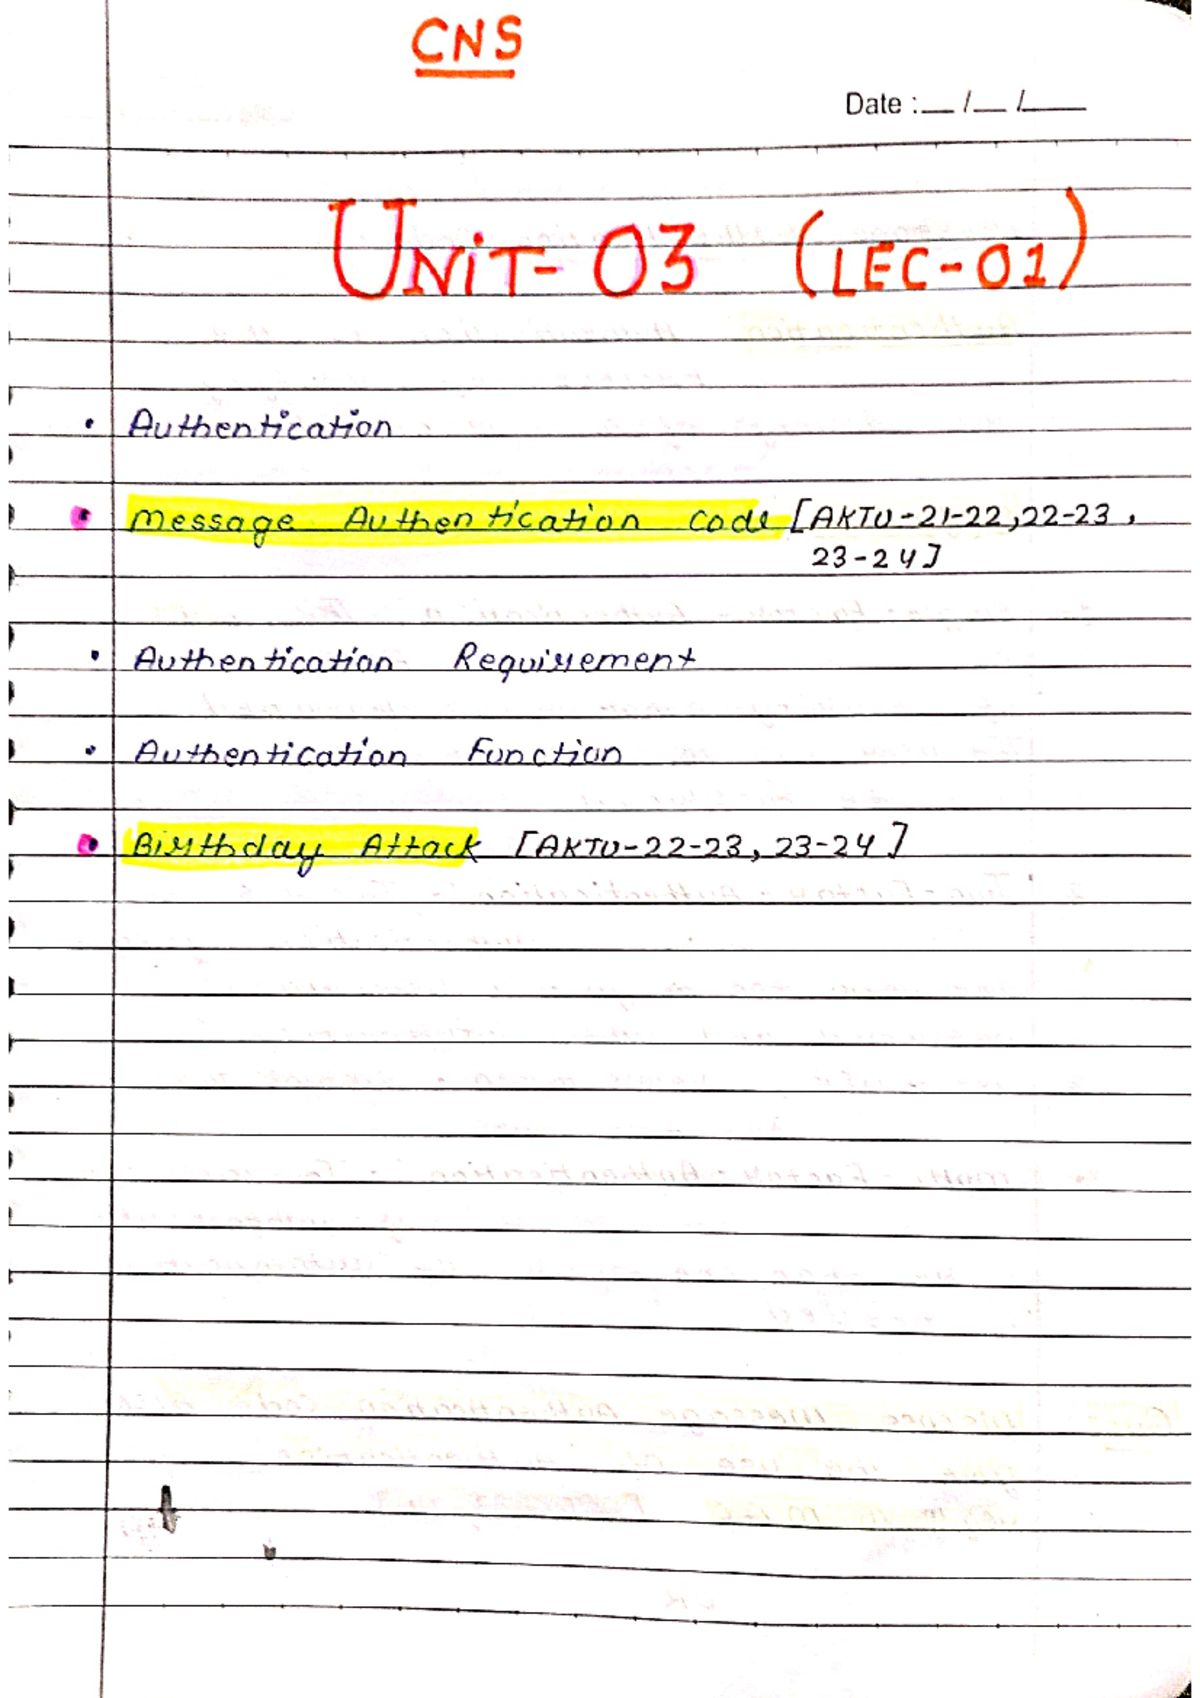 CNS
Date :__ /__ /____
UNiT- 03 (LEC-01)
• Authentication
• Message Authentication Code [AKTU-21-22, 22-23,
23-24]
• Authentication Requirement
• Authentication Function
• Birthday Attack [AKTU-22-23, 23-24]